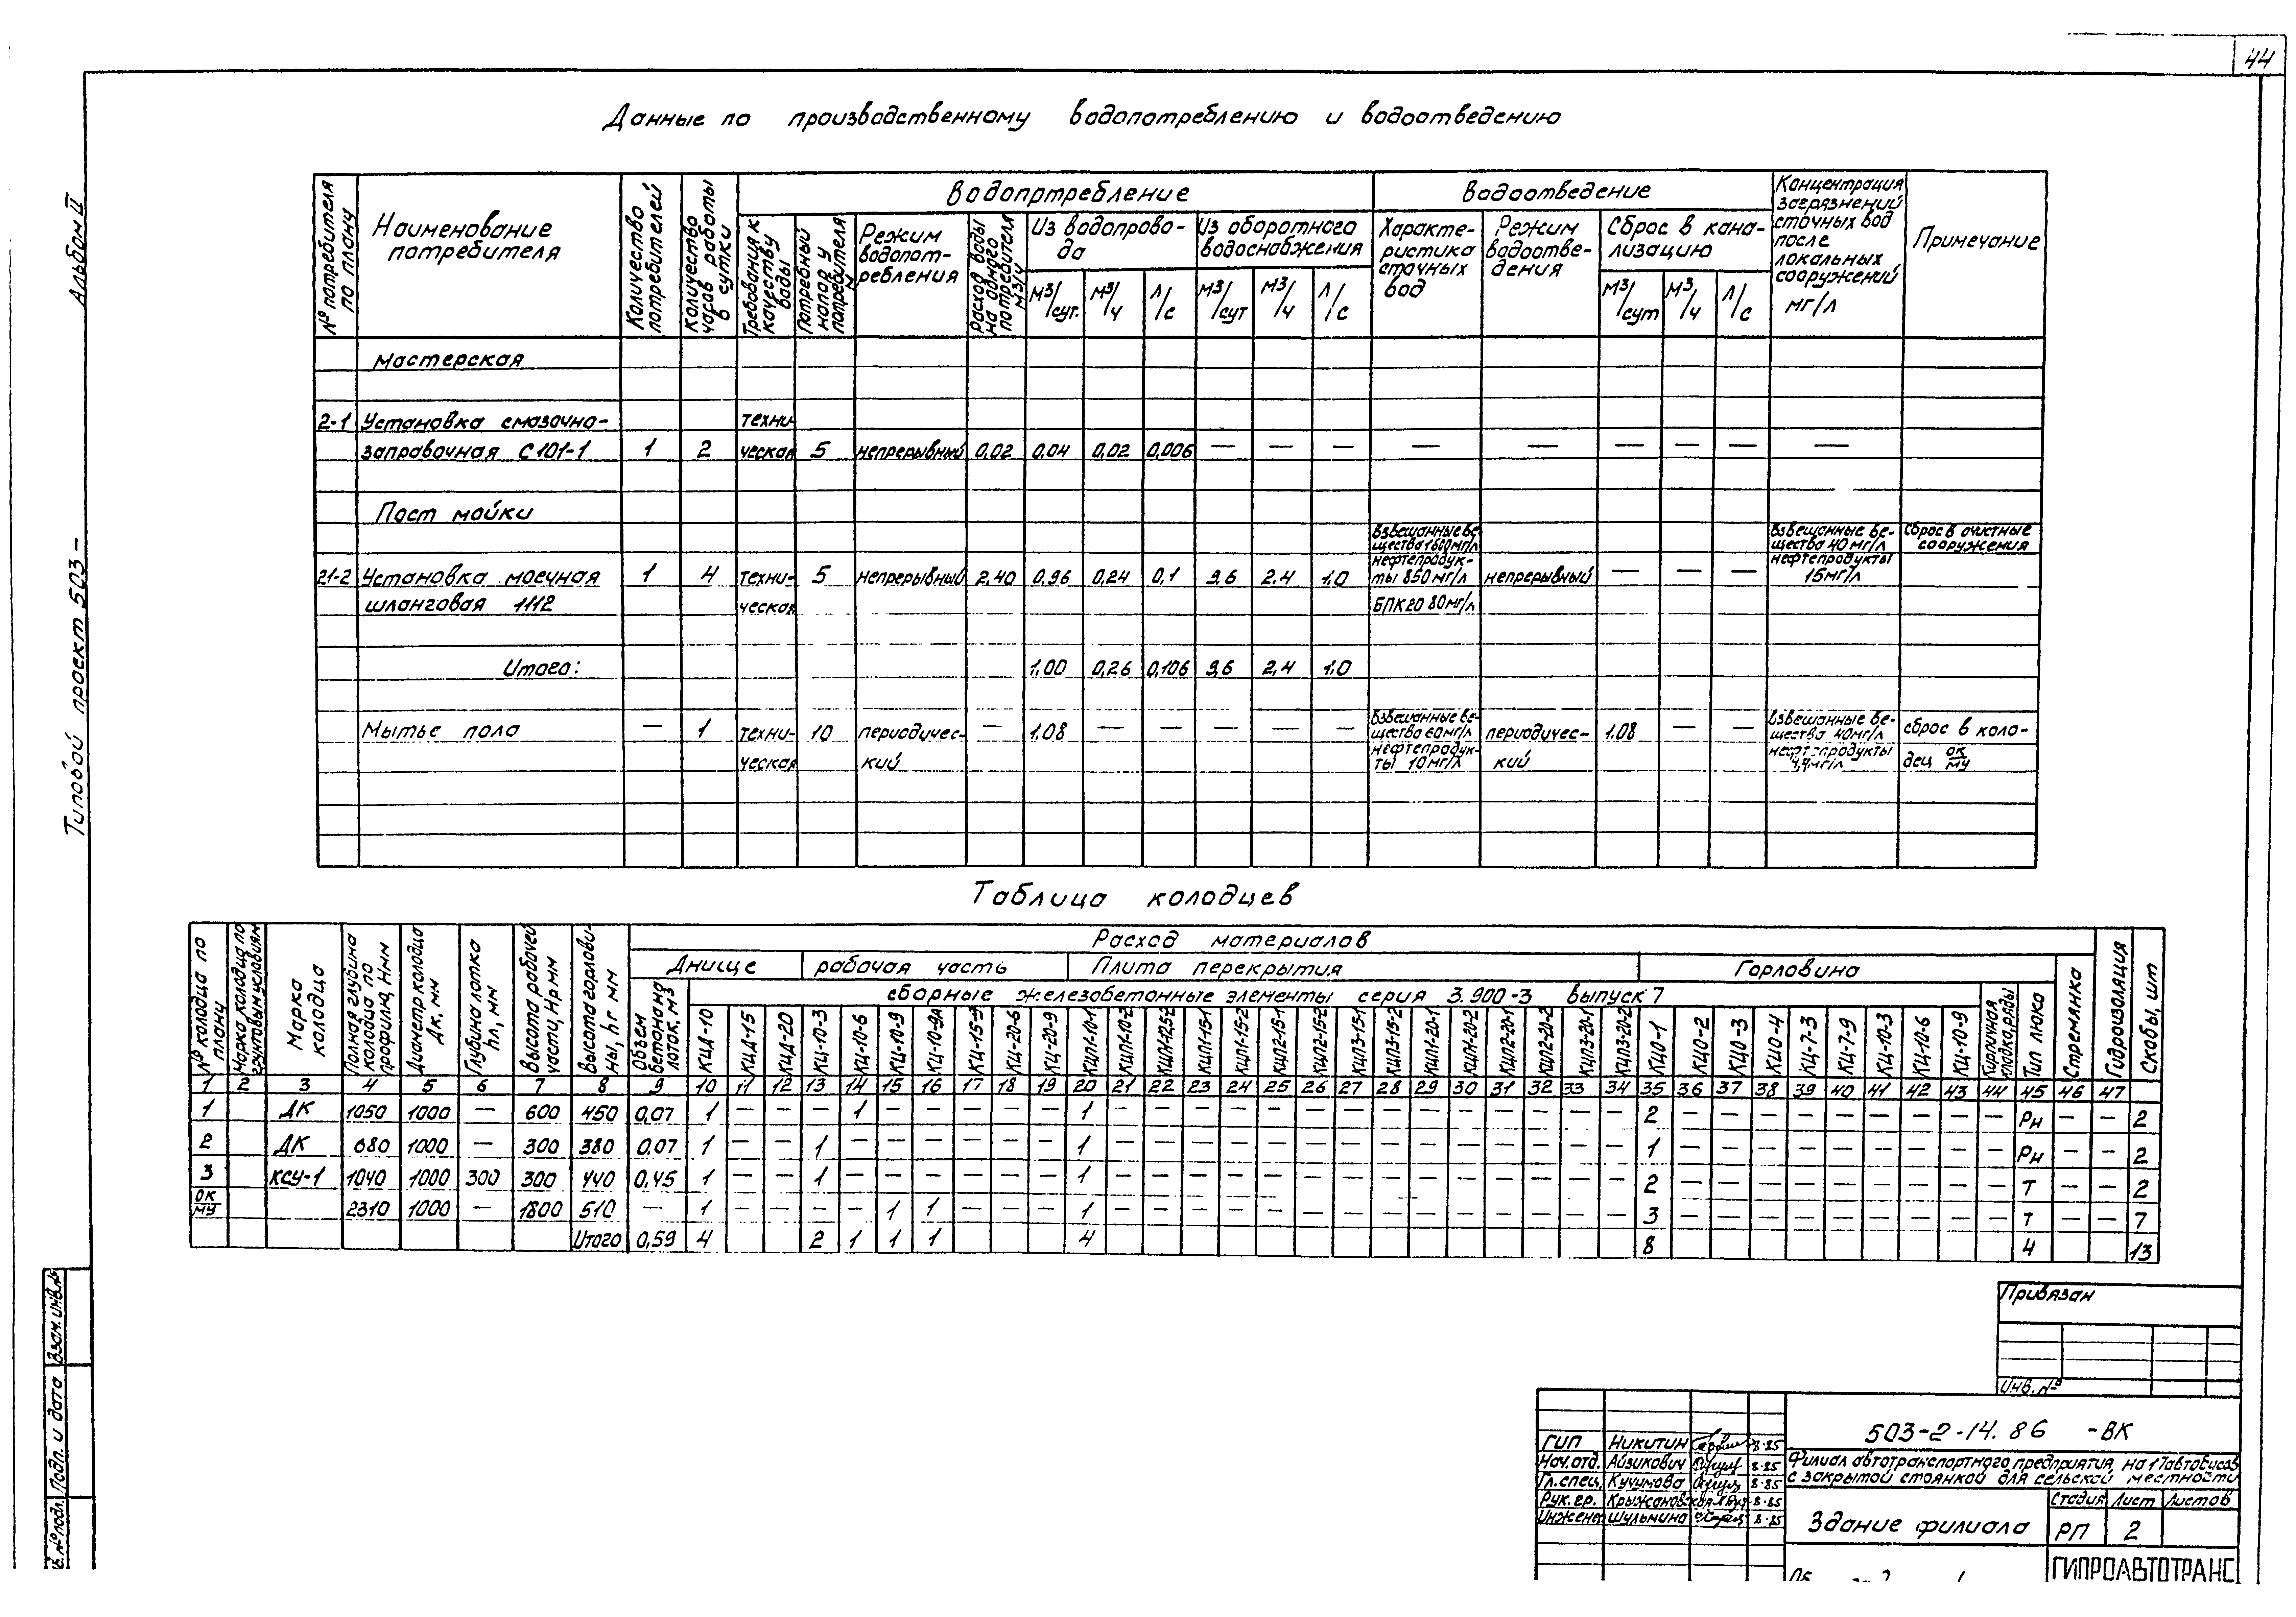 44
Данные по производственному водопотреблению и водоотведению
Альбом II
Типовой проект 503-
№ потребителя по плану
Наименование потребителя
Количество потребителей
Количество часов работы в сутки
Водопртребление
Требования к качеству воды
Потребный напор у потребителя
Режим водопот-
ребления
Расход воды на одного потребителя м3/ч
Из водопрово-
да
м3/сут. м3/ч л/с
Из оборотного
водоснабжения
м3/сут м3/ч л/с
Водоотведение
Характе-
ристика
сточных
вод
Режим
водоотве-
дения
Сброс в кана-
лизацию
м3/сут м3/ч л/с
Концентрация
загрязнений
сточных вод
после
локальных
сооружений
мг/л
Примечание
мастерская
2-1 Установка смазочно- техни-
заправочная С101-1 1 2 ческая 5 непрерывный 0,02 0,04 0,02 0,006 — — — — — — — — —
Пост мойки
взвешанные ве-
щества 1600мг/л
взвешанные ве-
щества 40 мг/л
сброс в очистные
сооружения
нефтепродук-
ты 850 мг/л
нефтепродукты
15мг/л
21-2 Установка моечная 1 4 техни- 5 непрерывный 2,40 0,96 0,24 0,1 9,6 2,4 1,0 непрерывный — — —
шланговая 1112 ческая БПК20 80мг/л
Итого: 1,00 0,26 0,106 9,6 2,4 1,0
Мытье пола — 1 техни- 10 периодичес- — 1,08 — — — — — периодичес- 1,08 — — сброс в коло-
взвешанные ве-
щества 60мг/л
взвешанные ве-
щества 40мг/л
ческая кий кий дец ОК/МУ
нефтепродук-
ты 10 мг/л
нефтепродукты
Таблица колодцев
№ колодца по плану
Марка колодца по грунтовым условиям
Марка колодца
Полная глубина колодца по профилю, Нмм
Диаметр колодца Дк, мм
Глубина лотка hл, мм
Высота рабочей части, Нр мм
Высота горлови-
ны, hг мм
Расход материалов
Днище рабочая часть Плита перекрытия Горловина
Объем бетона на лоток, м3
сборные железобетонные элементы серия 3.900-3 выпуск 7
КЦД-10 КЦД-15 КЦД-20 КЦ-10-3 КЦ-10-6 КЦ-10-9 КЦ-10-9А КЦ-15-9 КЦ-20-6 КЦ-20-9 КЦП1-10-1 КЦП1-10-2 КЦП1-12,5-2 КЦП1-15-1 КЦП1-15-2 КЦП2-15-1 КЦП2-15-2 КЦП3-15-1 КЦП3-15-2 КЦП1-20-1 КЦП1-20-2 КЦП2-20-1 КЦП2-20-2 КЦП3-20-1 КЦП3-20-2 КЦО-1 КЦО-2 КЦО-3 КЦО-4 КЦ-7-3 КЦ-7-9 КЦ-10-3 КЦ-10-6 КЦ-10-9
Кирпичная кладка, ряды
Тип люка
Стремянка
Гидроизоляция
Скобы, шт
1 2 3 4 5 6 7 8 9 10 11 12 13 14 15 16 17 18 19 20 21 22 23 24 25 26 27 28 29 30 31 32 33 34 35 36 37 38 39 40 41 42 43 44 45 46 47
1 ДК 1050 1000 — 600 450 0,07 1 — — — 1 — — — — — 1 — — — — — — — — — — — — — — 2 — — — — — — — — — Рн — — 2
2 ДК 680 1000 — 300 380 0,07 1 — — 1 — — — — — — 1 — — — — — — — — — — — — — — 1 — — — — — — — — — Рн — — 2
3 КСУ-1 1040 1000 300 300 440 0,45 1 — — 1 — — — — — — 1 — — — — — — — — — — — — — — 2 — — — — — — — — — Т — — 2
ОК/МУ 2310 1000 — 1800 510 — 1 — — — — 1 1 — — — 1 — — — — — — — — — — — — — — 3 — — — — — — — — — Т — — 7
Итого 0,59 4 2 1 1 1 4 8 4 13
Привязан
Инв. №
503-2-14.86 -ВК
ГИП Никитин 8·85
Нач.отд. Айзикович 8·85
Гл.спец. Кучумова 8·85
Рук. гр. Крыжановская 8·85
Инженер Шульмина 8·85
Филиал автотранспортного предприятия на 17автобусов
с закрытой стоянкой для сельской местности
Здание филиала
Стадия Лист Листов
РП 2
ГИПРОАВТОТРАНС
Взам. инв.№
Подп. и дата
№ подл.